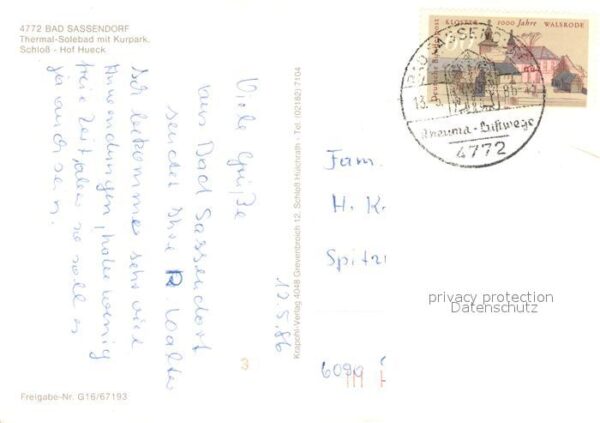 4772 BAD SASSENDORF
Thermal-Solebad mit Kurpark.
Schloß - Hof Hueck
Viele Grüße
aus Bad Sassendorf
sendet Ihre R. Walter
Ich bekomme sehr viel
Anwendungen, habe wenig
freie Zeit, aber so soll es
ja auch sein.
12.5.86
3
Freigabe-Nr. G16/67193
Krapohl-Verlag 4048 Grevenbroich 12, Schloß Hülchrath · Tel. (02182) 7104
KLOSTER 1000 Jahre WALSRODE
BAD SASSENDORF
13.5.86
Rheuma - Luftwege
4772
Fam.
H. K.
Spitz
6090
privacy protection
Datenschutz